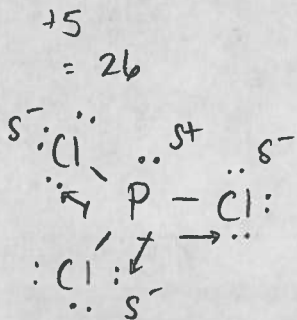 +5
= 26
δ- :Cl: δ+ δ-
P - Cl:
:Cl: δ-